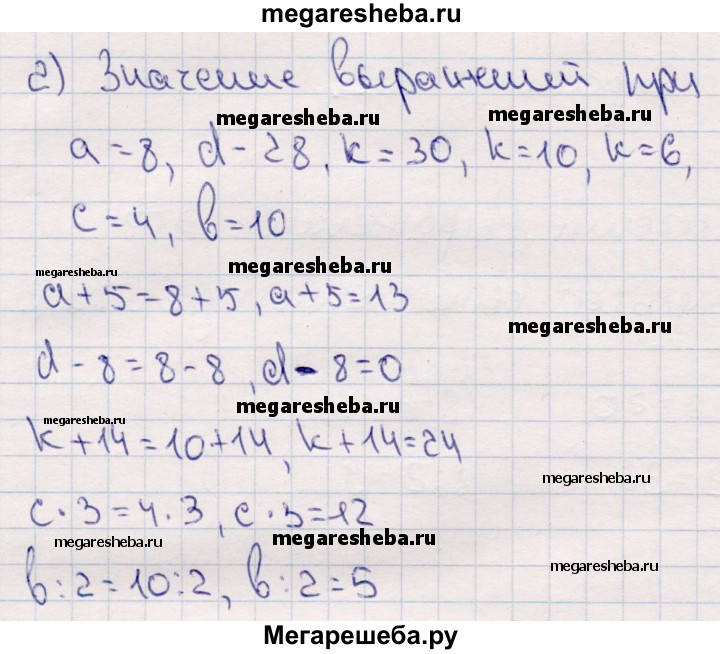 megaresheba.ru
г) Значение выражений при
megaresheba.ru megaresheba.ru
a = 8, d - 28, k = 30, k = 10, k = 6,
c = 4, b = 10
megaresheba.ru megaresheba.ru
a + 5 = 8 + 5, a + 5 = 13
megaresheba.ru
d - 8 = 8 - 8, d - 8 = 0
megaresheba.ru
megaresheba.ru
k + 14 = 10 + 14, k + 14 = 24
megaresheba.ru
c · 3 = 4 · 3, c · 3 = 12
megaresheba.ru megaresheba.ru megaresheba.ru
b : 2 = 10 : 2, b : 2 = 5
Мегарешеба.ру